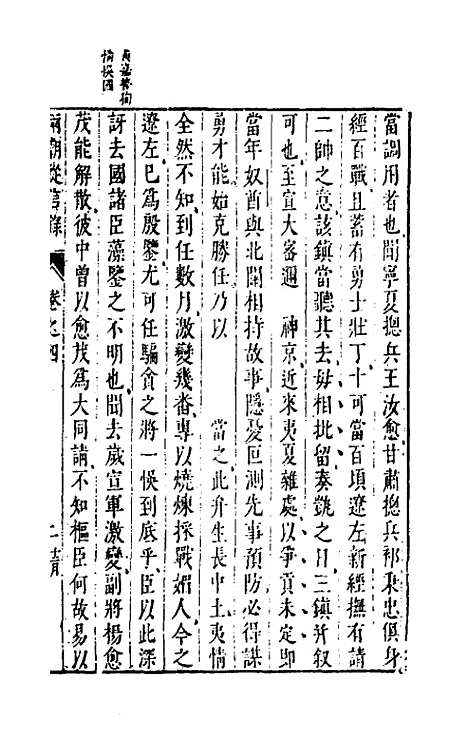 當調用者也聞寧夏總兵王汝愈甘肅總兵祁秉忠俱身
經百戰且蓄有勇士壯丁十可當百頃遼左新經撫有請
二帥之意該鎮當聽其去毋相批留奏凱之日三鎮並叙
可也至宣大密邇 神京近來夷夏雜處以爭貢未定即
當年奴酋與北關相持故事隱憂叵測先事預防必得謀
勇才能始克勝任乃以 當之此弁生長中土夷情
全然不知到任數月激變幾番專以燒煉採戰媚人今之
遼左已為殷鑒尤可任騙貪之將一悞到底乎臣以此深
訝去國諸臣藻鑒之不明也聞去歲宣軍激變副將楊愈
茂能解散彼中曾以愈茂為大同請不知樞臣何故易以
兩朝從信錄 卷之四 二
悞國